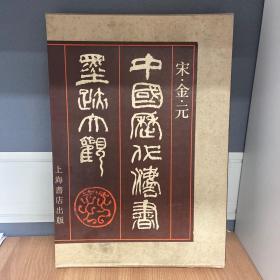 宋·金·元
中國歷代法書
墨跡大觀
上海書店出版